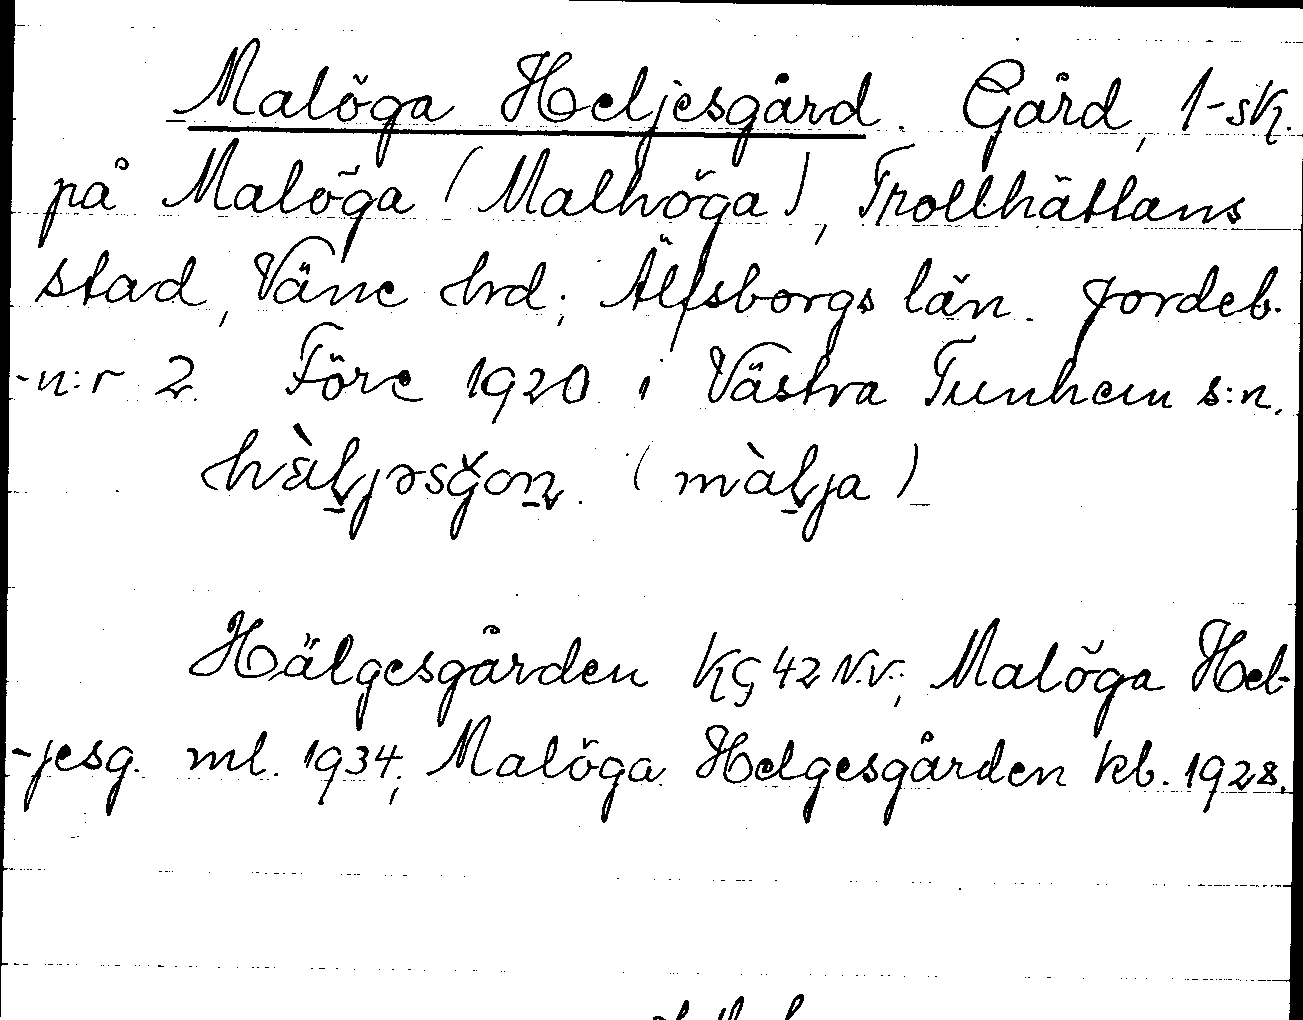 Malöga Heljesgård. Gård, 1-sk.
på Malöga (Malhöga), Trollhättans
stad, Väne hrd; Älfsborgs län. Jordeb.
-n:r 2. Före 1920 i Västra Tunhem s:n.
hàļjəsğoṉ. (màļja)
Hälgesgården KG 42 N.V.; Malöga Hel-
-jesg. ml. 1934; Malöga Helgesgården kb. 1928.